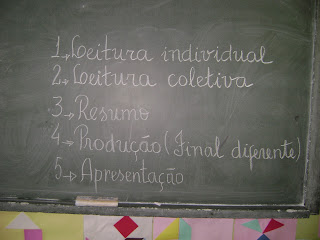 1→Leitura individual
2→Leitura coletiva
3→Resumo
4→Produção (Final diferente)
5→Apresentação